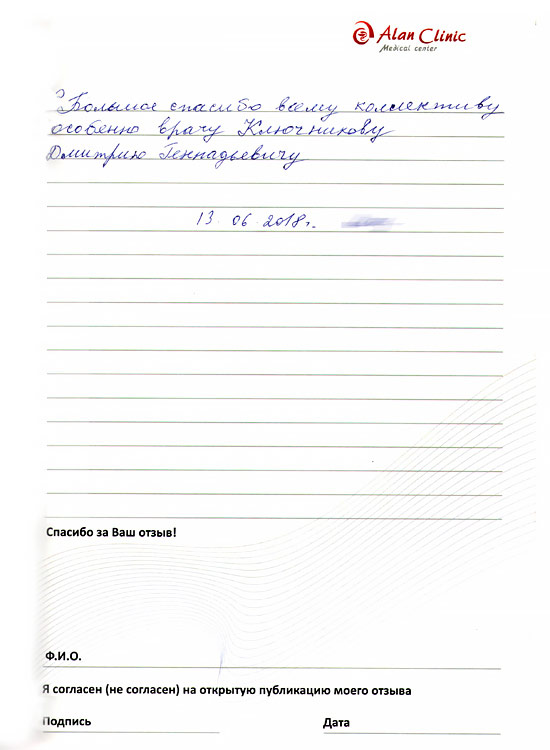 Alan Clinic
Medical center
Большое спасибо всему коллективу
особенно врачу Ключникову
Дмитрию Геннадьевичу
13 06 2018г.
Спасибо за Ваш отзыв!
Ф.И.О.
Я согласен (не согласен) на открытую публикацию моего отзыва
Подпись Дата